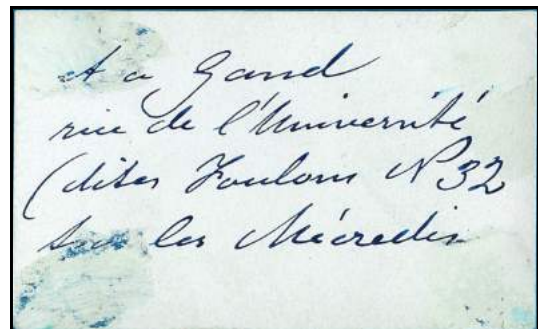 et a Gand
rue de l'Université
(dites Foulons N° 32
les Mécredis